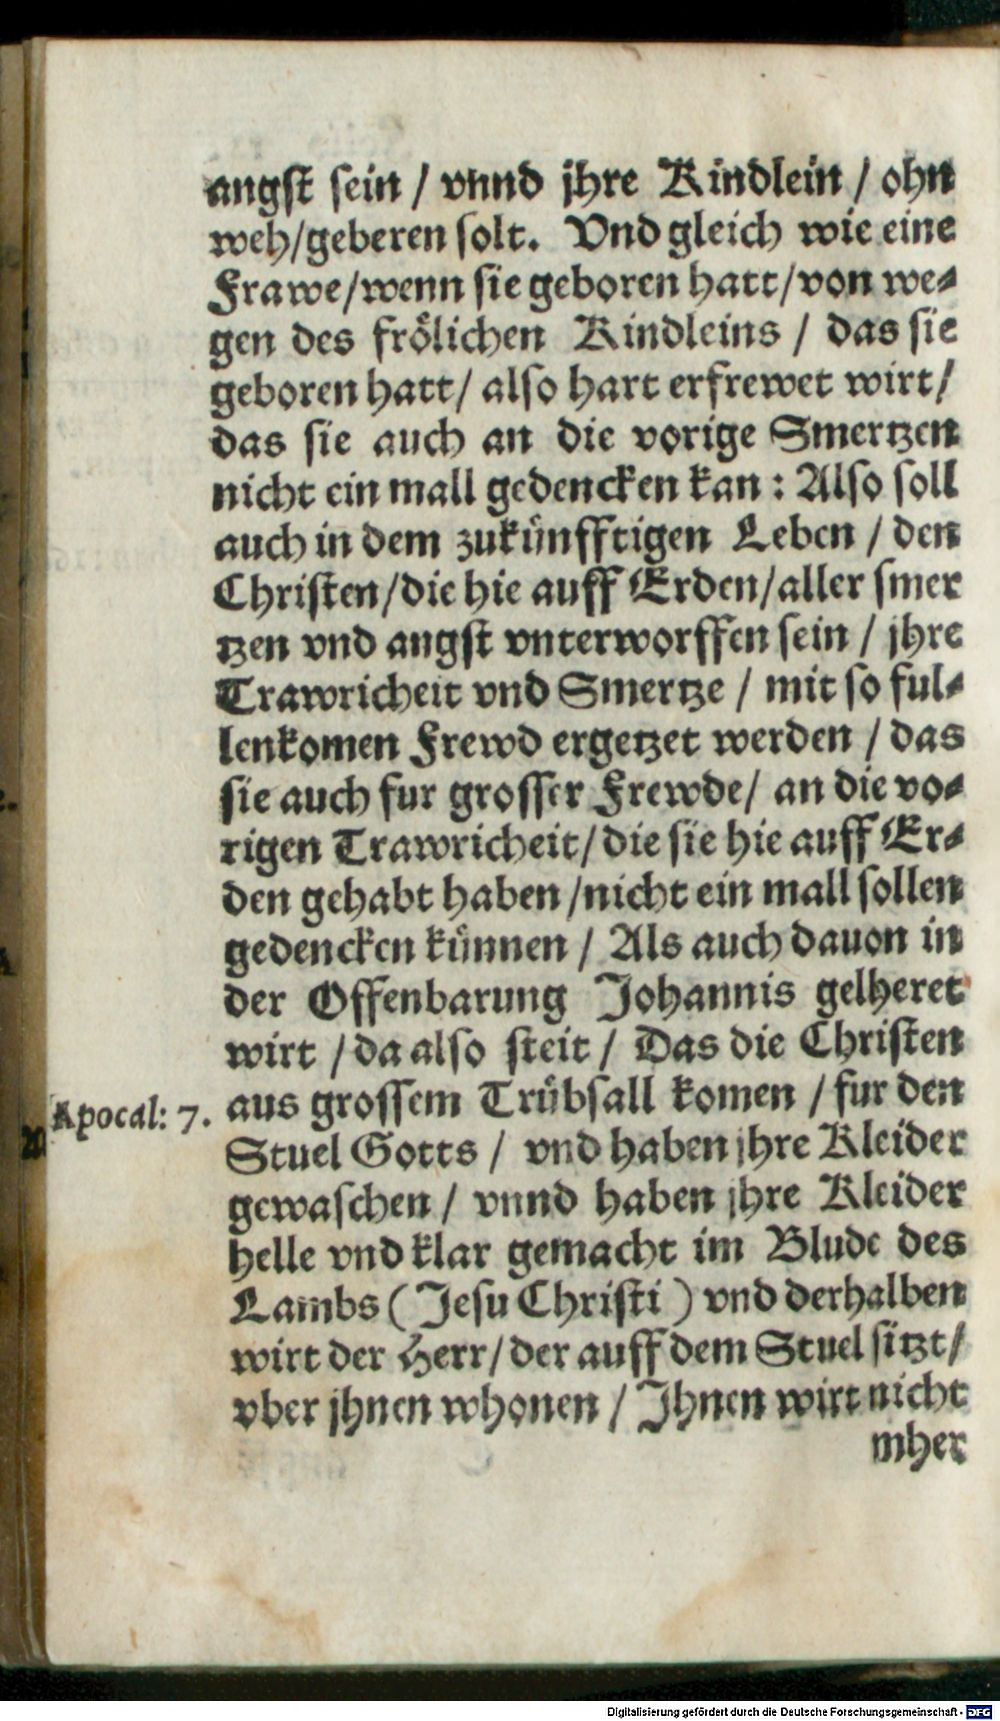 angst sein / vnnd jhre Kindlein / ohn
weh/geberen solt. Vnd gleich wie eine
Frawe/wenn sie geboren hatt/von we-
gen des frölichen Kindleins / das sie
geboren hatt/ also hart erfrewet wirt/
das sie auch an die vorige Smertzen
nicht ein mall gedencken kan : Also soll
auch in dem zukünfftigen Leben / den
Christen/die hie auff Erden/aller smer
tzen vnd angst vnterworffen sein / jhre
Trawricheit vnd Smertze / mit so ful-
lenkomen Frewd ergetzet werden / das
sie auch fur grosser Frewde/ an die vo-
rigen Trawricheit/die sie hie auff Er-
den gehabt haben /nicht ein mall sollen
gedencken künnen / Als auch dauon in
der Offenbarung Johannis gelheret
wirt / da also steit / Das die Christen
Apocal: 7. aus grossem Trübsall komen / fur den
Stuel Gotts / vnd haben jhre Kleider
gewaschen / vnnd haben jhre Kleider
helle vnd klar gemacht im Blude des
Lambs ( Jesu Christi ) vnd derhalben
wirt der Herr/der auff dem Stuel sitzt/
vber jhnen whonen / Ihnen wirt nicht
mher
Digitalisierung gefördert durch die Deutsche Forschungsgemeinschaft - DFG